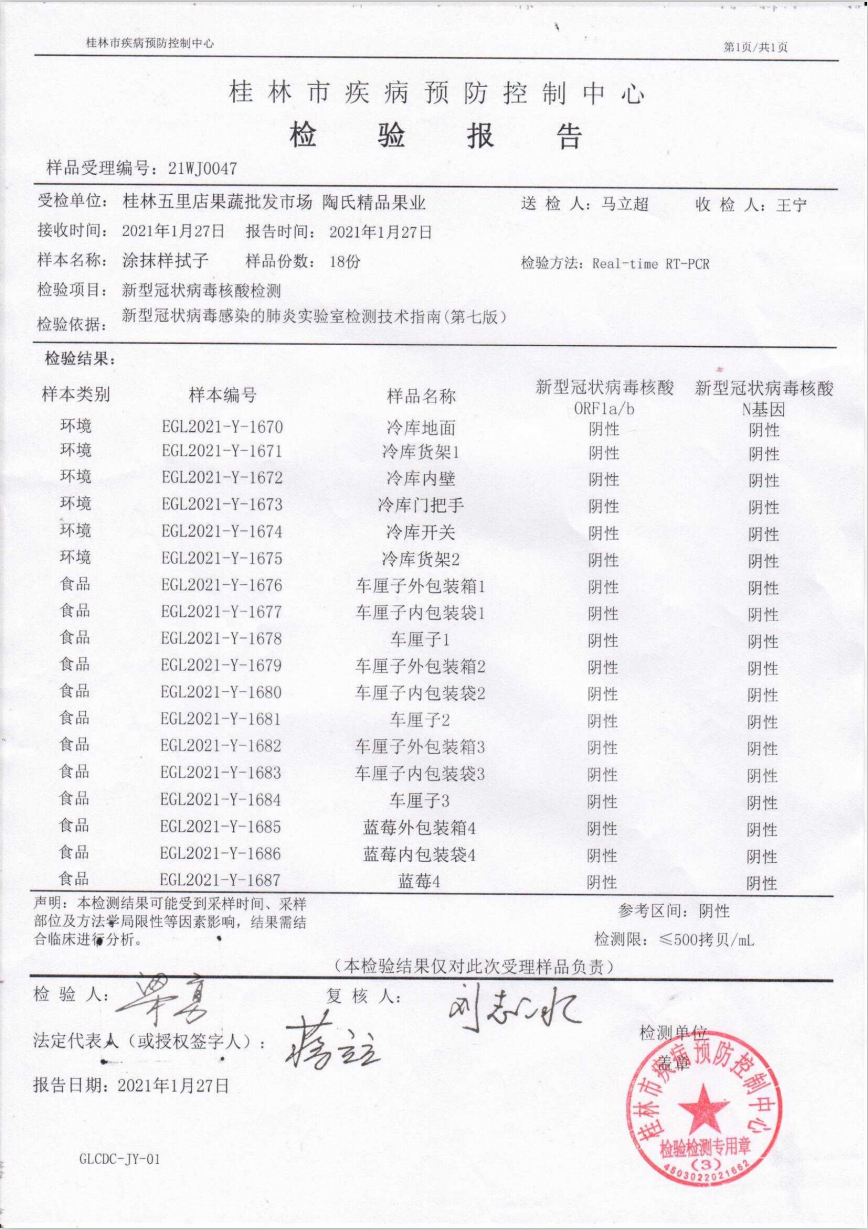 桂林市疾病预防控制中心 第1页/共1页
桂林市疾病预防控制中心
检验报告
样品受理编号：21WJ0047
受检单位：桂林五里店果蔬批发市场 陶氏精品果业 送检人：马立超 收检人：王宁
接收时间：2021年1月27日 报告时间：2021年1月27日
样本名称：涂抹样拭子 样品份数：18份 检验方法：Real-time RT-PCR
检验项目：新型冠状病毒核酸检测
检验依据：新型冠状病毒感染的肺炎实验室检测技术指南(第七版)
检验结果：
样本类别 样本编号 样品名称 新型冠状病毒核酸 新型冠状病毒核酸
ORF1a/b N基因
环境 EGL2021-Y-1670 冷库地面 阴性 阴性
环境 EGL2021-Y-1671 冷库货架1 阴性 阴性
环境 EGL2021-Y-1672 冷库内壁 阴性 阴性
环境 EGL2021-Y-1673 冷库门把手 阴性 阴性
环境 EGL2021-Y-1674 冷库开关 阴性 阴性
环境 EGL2021-Y-1675 冷库货架2 阴性 阴性
食品 EGL2021-Y-1676 车厘子外包装箱1 阴性 阴性
食品 EGL2021-Y-1677 车厘子内包装袋1 阴性 阴性
食品 EGL2021-Y-1678 车厘子1 阴性 阴性
食品 EGL2021-Y-1679 车厘子外包装箱2 阴性 阴性
食品 EGL2021-Y-1680 车厘子内包装袋2 阴性 阴性
食品 EGL2021-Y-1681 车厘子2 阴性 阴性
食品 EGL2021-Y-1682 车厘子外包装箱3 阴性 阴性
食品 EGL2021-Y-1683 车厘子内包装袋3 阴性 阴性
食品 EGL2021-Y-1684 车厘子3 阴性 阴性
食品 EGL2021-Y-1685 蓝莓外包装箱4 阴性 阴性
食品 EGL2021-Y-1686 蓝莓内包装袋4 阴性 阴性
食品 EGL2021-Y-1687 蓝莓4 阴性 阴性
声明：本检测结果可能受到采样时间、采样
部位及方法学局限性等因素影响，结果需结
合临床进行分析。
参考区间：阴性
检测限：≤500拷贝/mL
(本检验结果仅对此次受理样品负责)
检验人： 复核人：
法定代表人（或授权签字人）：
检测单位
盖章
报告日期：2021年1月27日
桂林市疾病预防控制中心
检验检测专用章
(3)
4503022021662
GLCDC-JY-01